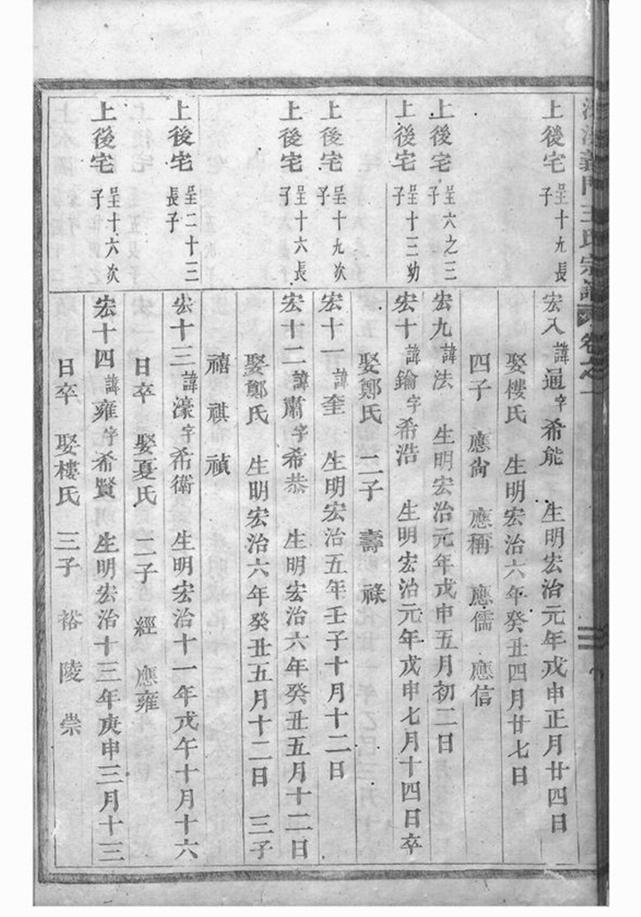 義門王氏宗譜 卷之一
上後宅 呈十九長子 宏入 諱通字希能 生明宏治元年戊申正月廿四日
娶樓氏 生明宏治六年癸丑四月廿七日
四子 應尚 應稱 應儒 應信
上後宅 呈六之三子 宏九 諱法 生明宏治元年戊申五月初二日
上後宅 呈十三幼子 宏十 諱鑰字希浩 生明宏治元年戊申七月十四日卒
娶鄭氏 二子 壽 祿
上後宅 呈十九次子 宏十一 諱奎 生明宏治五年壬子十月十二日
上後宅 呈十六長子 宏十二 諱肅字希恭 生明宏治六年癸丑五月十二日
娶鄭氏 生明宏治六年癸丑五月十二日 三子
禧 祺 禎
上後宅 呈二十三長子 宏十三 諱濠字希衛 生明宏治十一年戊午十月十六
日卒 娶夏氏 二子 經 應雍
上後宅 呈十六次子 宏十四 諱雍字希賢 生明宏治十三年庚申三月十三
日卒 娶樓氏 三子 裕 陵 崇